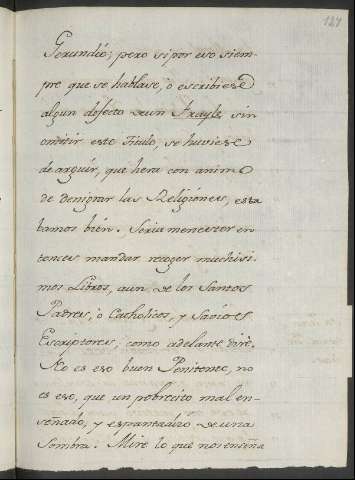 127
Gerundio; pero si por eso siem-
pre que se hablase, ò escribiese
algun defecto de un Frayle, sin
omitir este Titulo, se huviese
de arguir, que hera con animo
de denigrar las Religiones, esta
bamos bién. Seria menester en-
tonces mandar recoger muchisi-
mos Libros, aun de los Santos
Padres, ò Catholicos, y Savios
Escryptores, como adelante diré.
No es eso buen Penitente, no
es eso, que un pobrecito mal en-
señado, y espantadizo de una
Sombra. Mire lo que nos enseña